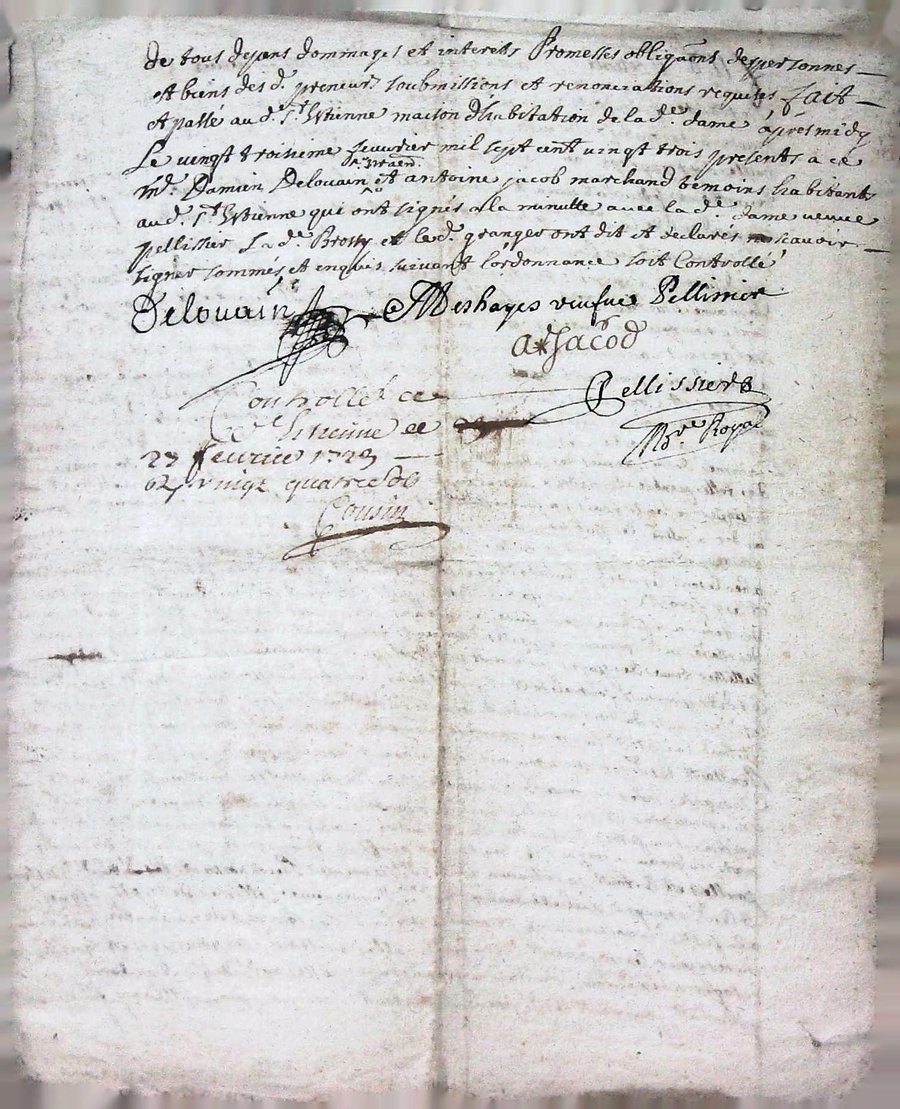 de tous depens dommages et interets Promesses obligaōns despersonnes
et biens des d. preneurs soubmissions et renonciations requises fait
et passé aud. St Estienne maison d'habitation de lad.e dame après midy
Le vingt troisieme feuvrier mil sept cent vingt trois presents a ce
Mr. Damien Delouain et antoine jacob marchand temoins habitants
aud. St Estienne qui ont signés a la minutte avec lad.e dame veuve
pellissier Lad.e Brossy et led. granger ont dit et declarés ne scavoir
signer sommés et enquis suivant l'ordonnance soit Controllé
Delouain
Deshayes veufve Pellissier
A Jacob
Pellissier
Nore Royal
Controllé ce
St Etienne ce
27 fevrier 1723
vingt quatre sols
Cousin